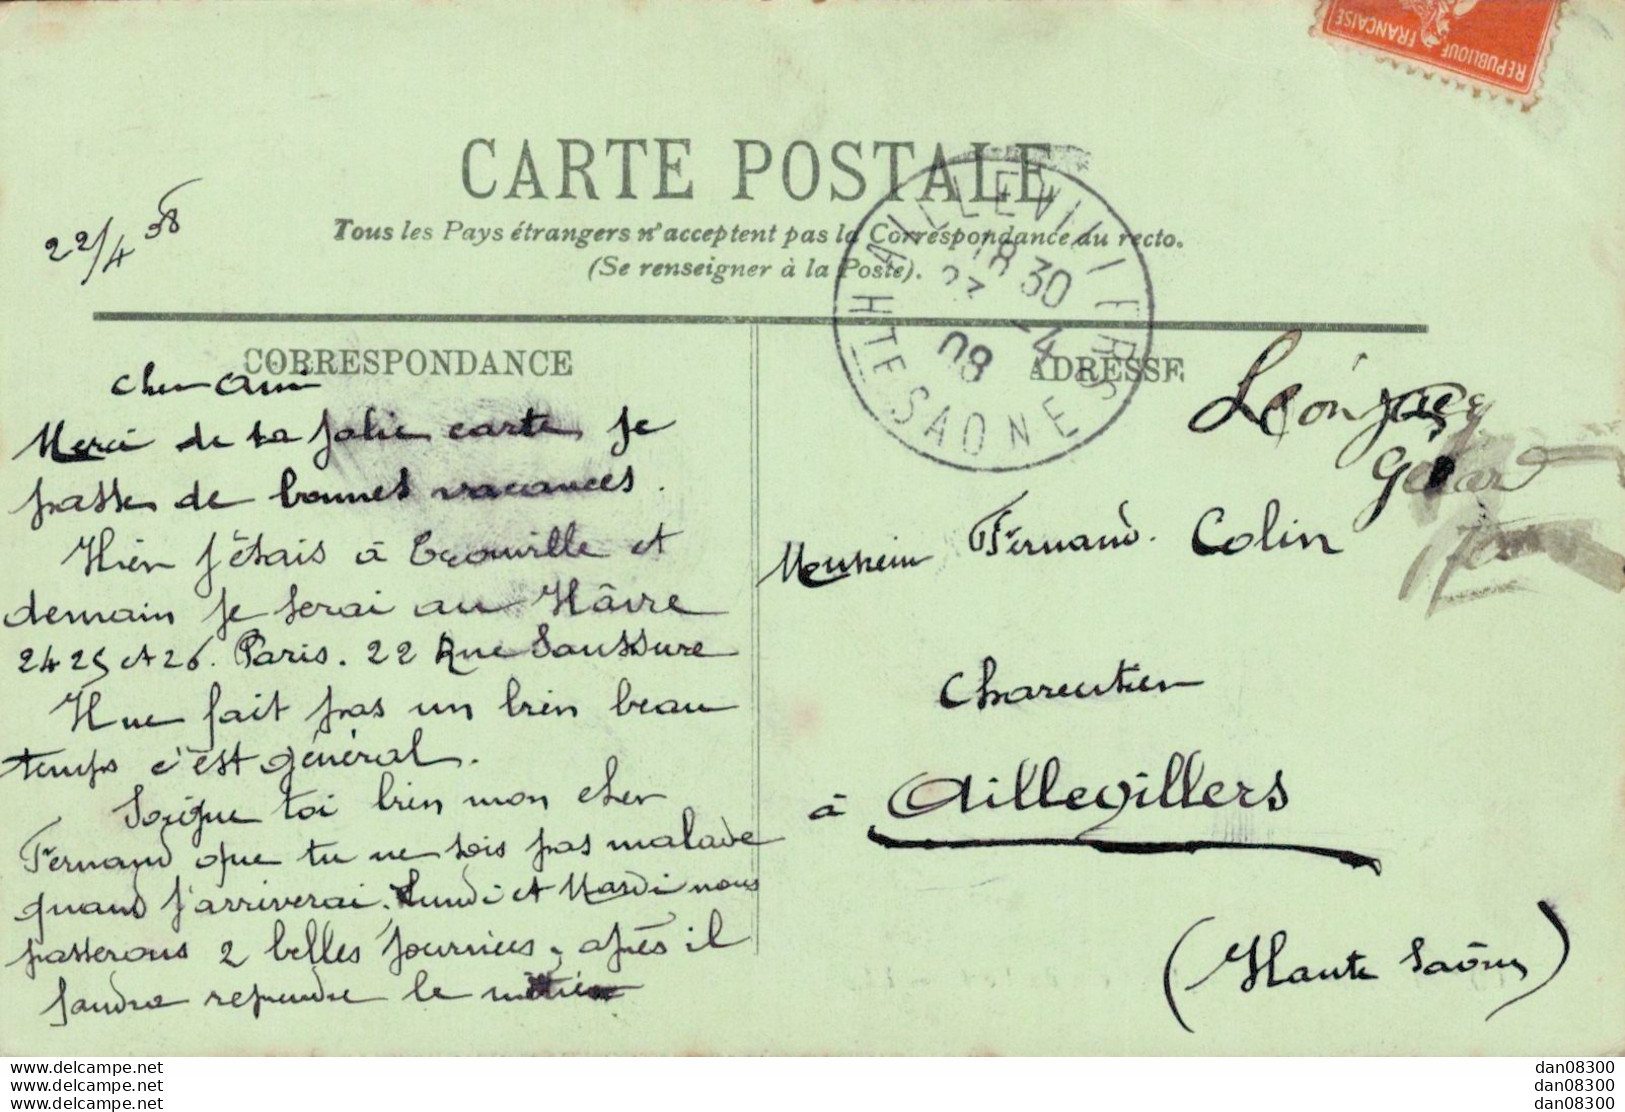 REPUBLIQUE FRANÇAISE
CARTE POSTALE
Tous les Pays étrangers n'acceptent pas la Correspondance au recto.
(Se renseigner à la Poste).
22/4 08
AILLEVILLERS
18 30
23 4
08
HTE SAONE
CORRESPONDANCE
Cher Ami
Merci de ta jolie carte, je
passe de bonnes vacances.
Hier j'étais à Trouville et
demain je serai au Hâvre
24 25 et 26. Paris. 22 Rue Saussure
Il ne fait pas un bien beau
temps c'est général.
Soigne toi bien mon cher
Fernand que tu ne sois pas malade
quand j'arriverai. Lundi et Mardi nous
passerons 2 belles journées, après il
faudra reprendre le métier
ADRESSE
Léon
Monsieur Fernand Colin
Charcutier
à Aillevillers
(Haute Saône)
www.delcampe.net
www.delcampe.net
www.delcampe.net
dan08300
dan08300
dan08300